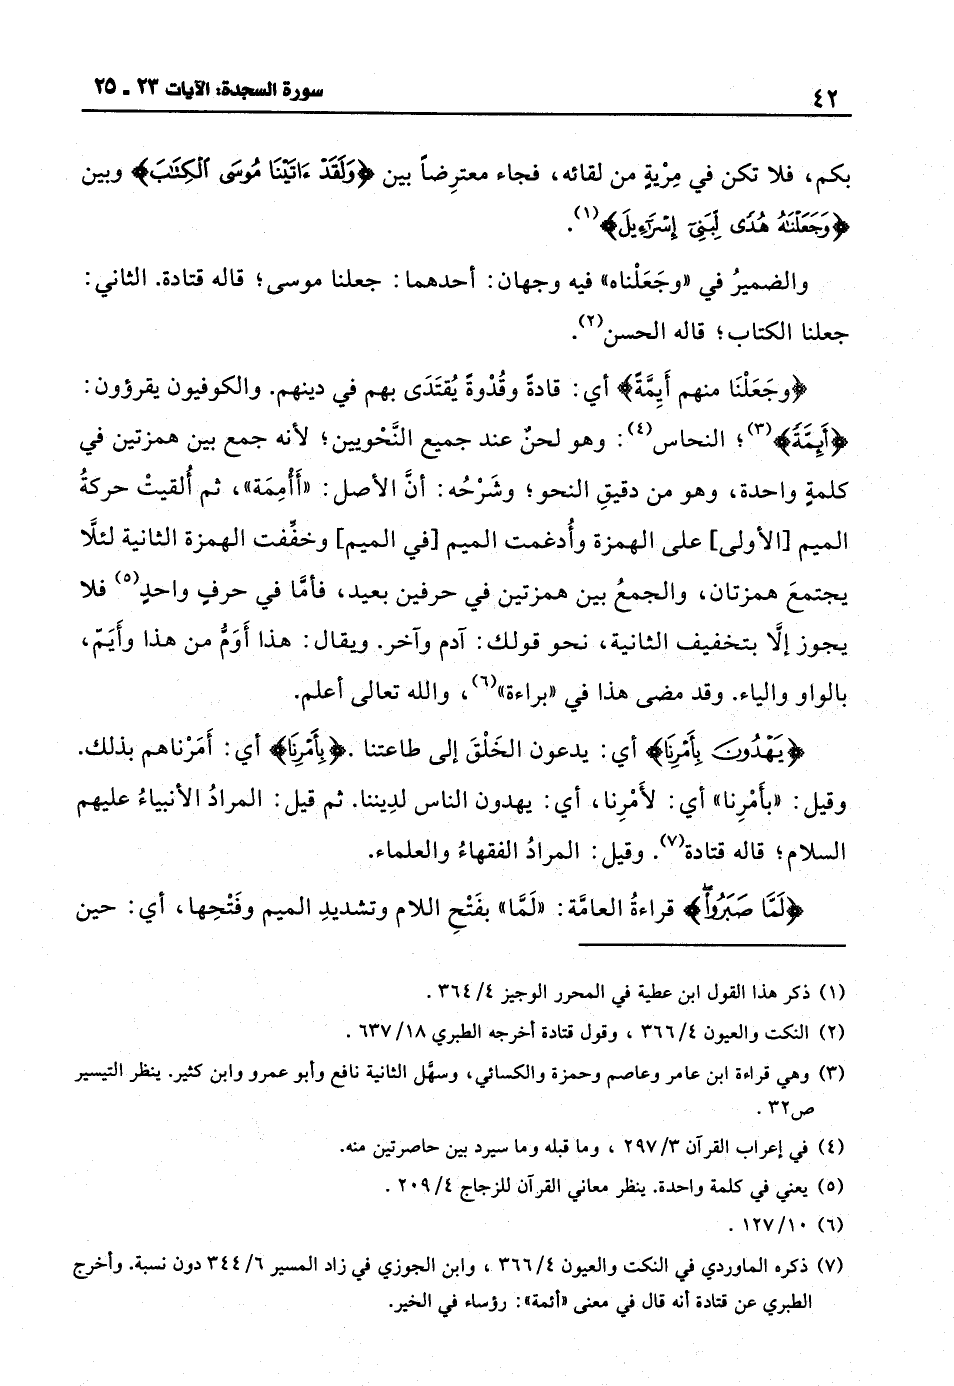 ٤٢
سورة السجدة: الآيات ٢٣ ـ ٢٥
بكم، فلا تكن في مِرْيةٍ من لقائه، فجاء معترِضاً بين ﴿وَلَقَدْ ءَاتَيْنَا مُوسَى ٱلْكِتَٰبَ﴾ وبين
﴿وَجَعَلْنَٰهُ هُدًى لِّبَنِىٓ إِسْرَٰٓءِيلَ﴾(١).
والضميرُ في «وجَعَلْناه» فيه وجهان: أحدهما: جعلنا موسى؛ قاله قتادة. الثاني:
جعلنا الكتاب؛ قاله الحسن(٢).
﴿وجَعَلْنَا منهم أَيِمَّةً﴾ أي: قادةً وقُدْوةً يُقتَدَى بهم في دينهم. والكوفيون يقرؤون:
﴿أَئِمَّةً﴾(٣)؛ النحاس(٤): وهو لحنٌ عند جميع النَّحْويين؛ لأنه جمع بين همزتين في
كلمةٍ واحدة، وهو من دقيقِ النحو؛ وشَرْحُه: أنَّ الأصل: «أَأْمِمَة»، ثم أُلقيتْ حركةُ
الميم [الأولى] على الهمزة وأُدغمت الميم [في الميم] وخفِّفت الهمزة الثانية لئلَّا
يجتمعَ همزتان، والجمعُ بين همزتين في حرفين بعيد، فأمَّا في حرفٍ واحدٍ(٥) فلا
يجوز إلَّا بتخفيف الثانية، نحو قولك: آدم وآخر. ويقال: هذا أَوَمُّ من هذا وأَيَمّ،
بالواو والياء. وقد مضى هذا في «براءة»(٦)، والله تعالى أعلم.
﴿يَهْدُونَ بِأَمْرِنَا﴾ أي: يدعون الخَلْقَ إلى طاعتنا .﴿بِأَمْرِنَا﴾ أي: أَمَرْناهم بذلك.
وقيل: «بأَمْرِنا» أي: لأَمْرِنا، أي: يهدون الناس لدِيننا. ثم قيل: المرادُ الأنبياءُ عليهم
السلام؛ قاله قتادة(٧). وقيل: المرادُ الفقهاءُ والعلماء.
﴿لَمَّا صَبَرُواْ﴾ قراءةُ العامَّة: «لَمَّا» بفَتْحِ اللام وتشديدِ الميم وفَتْحِها، أي: حين
(١) ذكر هذا القول ابن عطية في المحرر الوجيز ٣٦٤/٤ .
(٢) النكت والعيون ٣٦٦/٤ ، وقول قتادة أخرجه الطبري ٦٣٧/١٨ .
(٣) وهي قراءة ابن عامر وعاصم وحمزة والكسائي، وسهَّل الثانية نافع وأبو عمرو وابن كثير. ينظر التيسير
ص٣٢ .
(٤) في إعراب القرآن ٢٩٧/٣ ، وما قبله وما سيرد بين حاصرتين منه.
(٥) يعني في كلمة واحدة. ينظر معاني القرآن للزجاج ٢٠٩/٤ .
(٦) ١٢٧/١٠ .
(٧) ذكره الماوردي في النكت والعيون ٣٦٦/٤ ، وابن الجوزي في زاد المسير ٣٤٤/٦ دون نسبة. وأخرج
الطبري عن قتادة أنه قال في معنى «أئمة»: رؤساء في الخير.